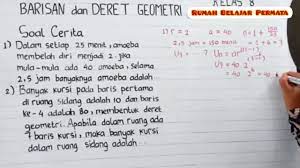 BARISAN dan DERET GEOMETRI
KELAS 8
RUMAH BELAJAR PERMATA
Soal Cerita
1) Dalam setiap 25 menit, amoeba
membelah diri menjadi 2. Jika
mula-mula ada 40 amoeba, selama
2,5 jam banyaknya amoeba adalah
2) Banyak kursi pada baris pertama
di ruang sidang adalah 10 dan baris
ke-4 adalah 80, membentuk deret
geometri. Apabila dalam ruang ada
7 baris kursi, maka banyak kursi
dalam ruang sidang adalah
1) r = 2 a = 40 n = 1 +
2,5 jam = 150 menit
= 40 2